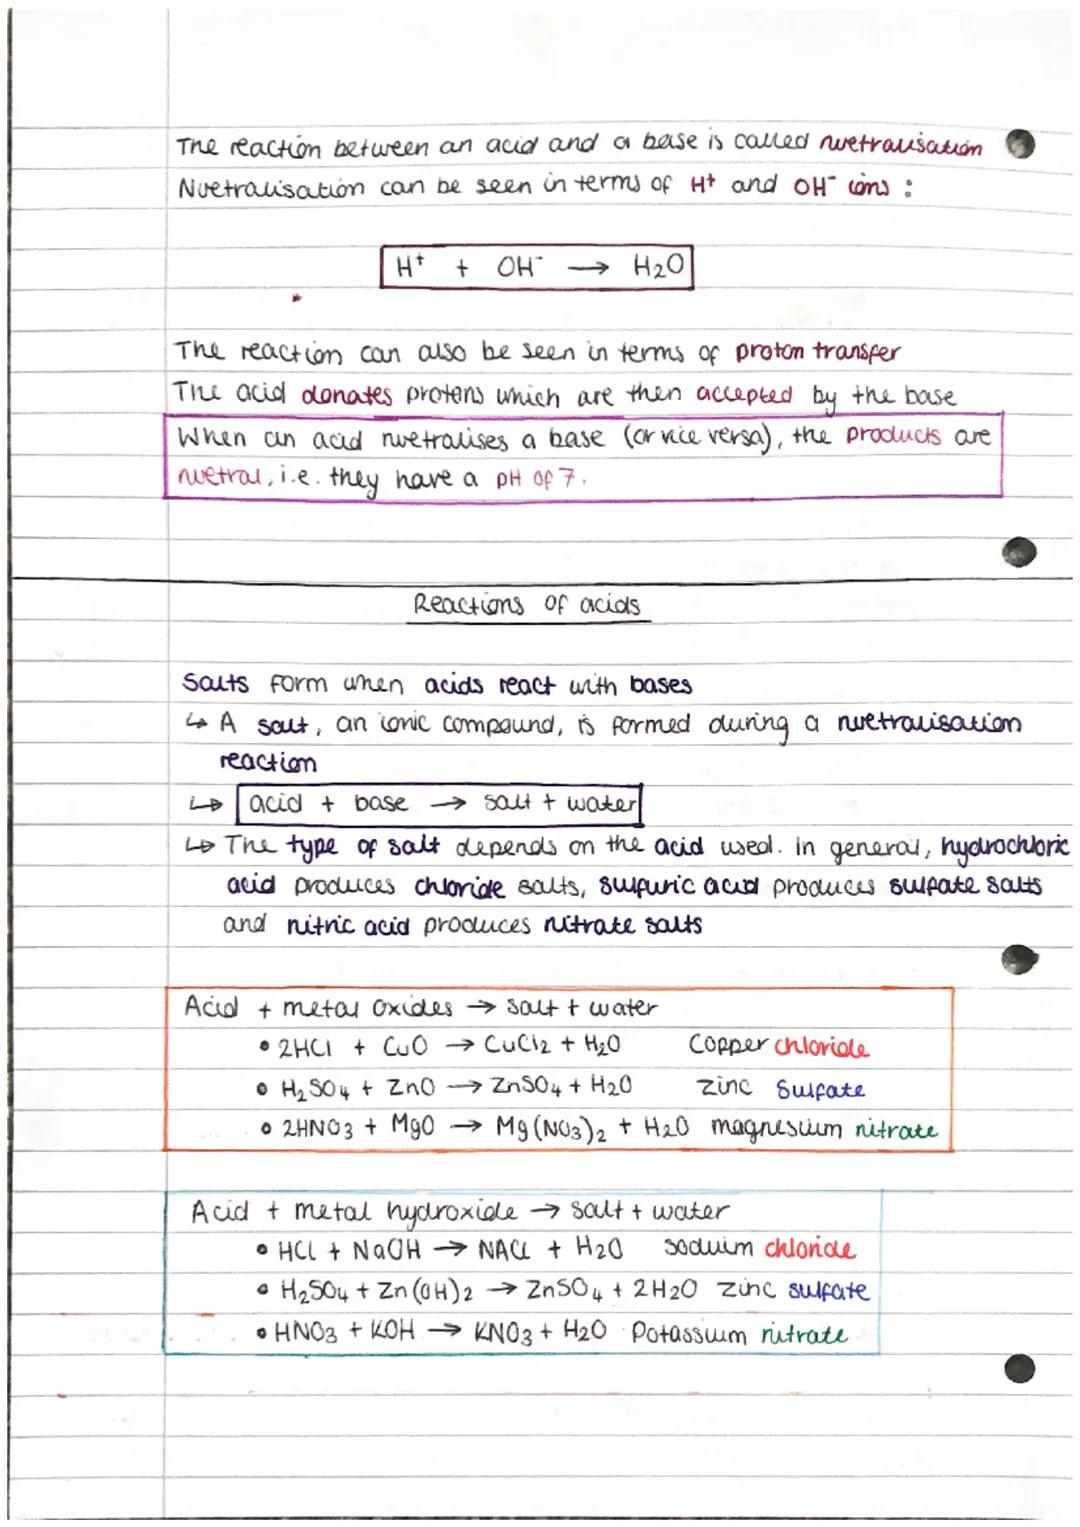 The reaction between an acid and a base is called nuetralisation
Nuetralisation can be seen in terms of H⁺ and OH⁻ ions :
H⁺ + OH⁻ → H₂O
The reaction can also be seen in terms of proton transfer
The acid donates protons which are then accepted by the base
When an acid nuetralises a base (or vice versa), the products are
nuetral, i.e. they have a pH of 7.
Reactions of acids
Salts form when acids react with bases
↳ A salt, an ionic compound, is formed during a nuetralisation
reaction
↳ acid + base → salt + water
↳ The type of salt depends on the acid used. in general, hydrochloric
acid produces chloride salts, sulfuric acid produces sulfate salts
and nitric acid produces nitrate salts
Acid + metal oxides → salt + water
• 2HCl + CuO → CuCl₂ + H₂O Copper chloride
• H₂SO₄ + ZnO → ZnSO₄ + H₂O zinc sulfate
• 2HNO₃ + MgO → Mg(NO₃)₂ + H₂O magnesium nitrate
Acid + metal hydroxide → salt + water
• HCl + NaOH → NACl + H₂O soduim chloride
• H₂SO₄ + Zn(OH)₂ → ZnSO₄ + 2H₂O zinc sulfate
• HNO₃ + KOH → KNO₃ + H₂O Potassium nitrate